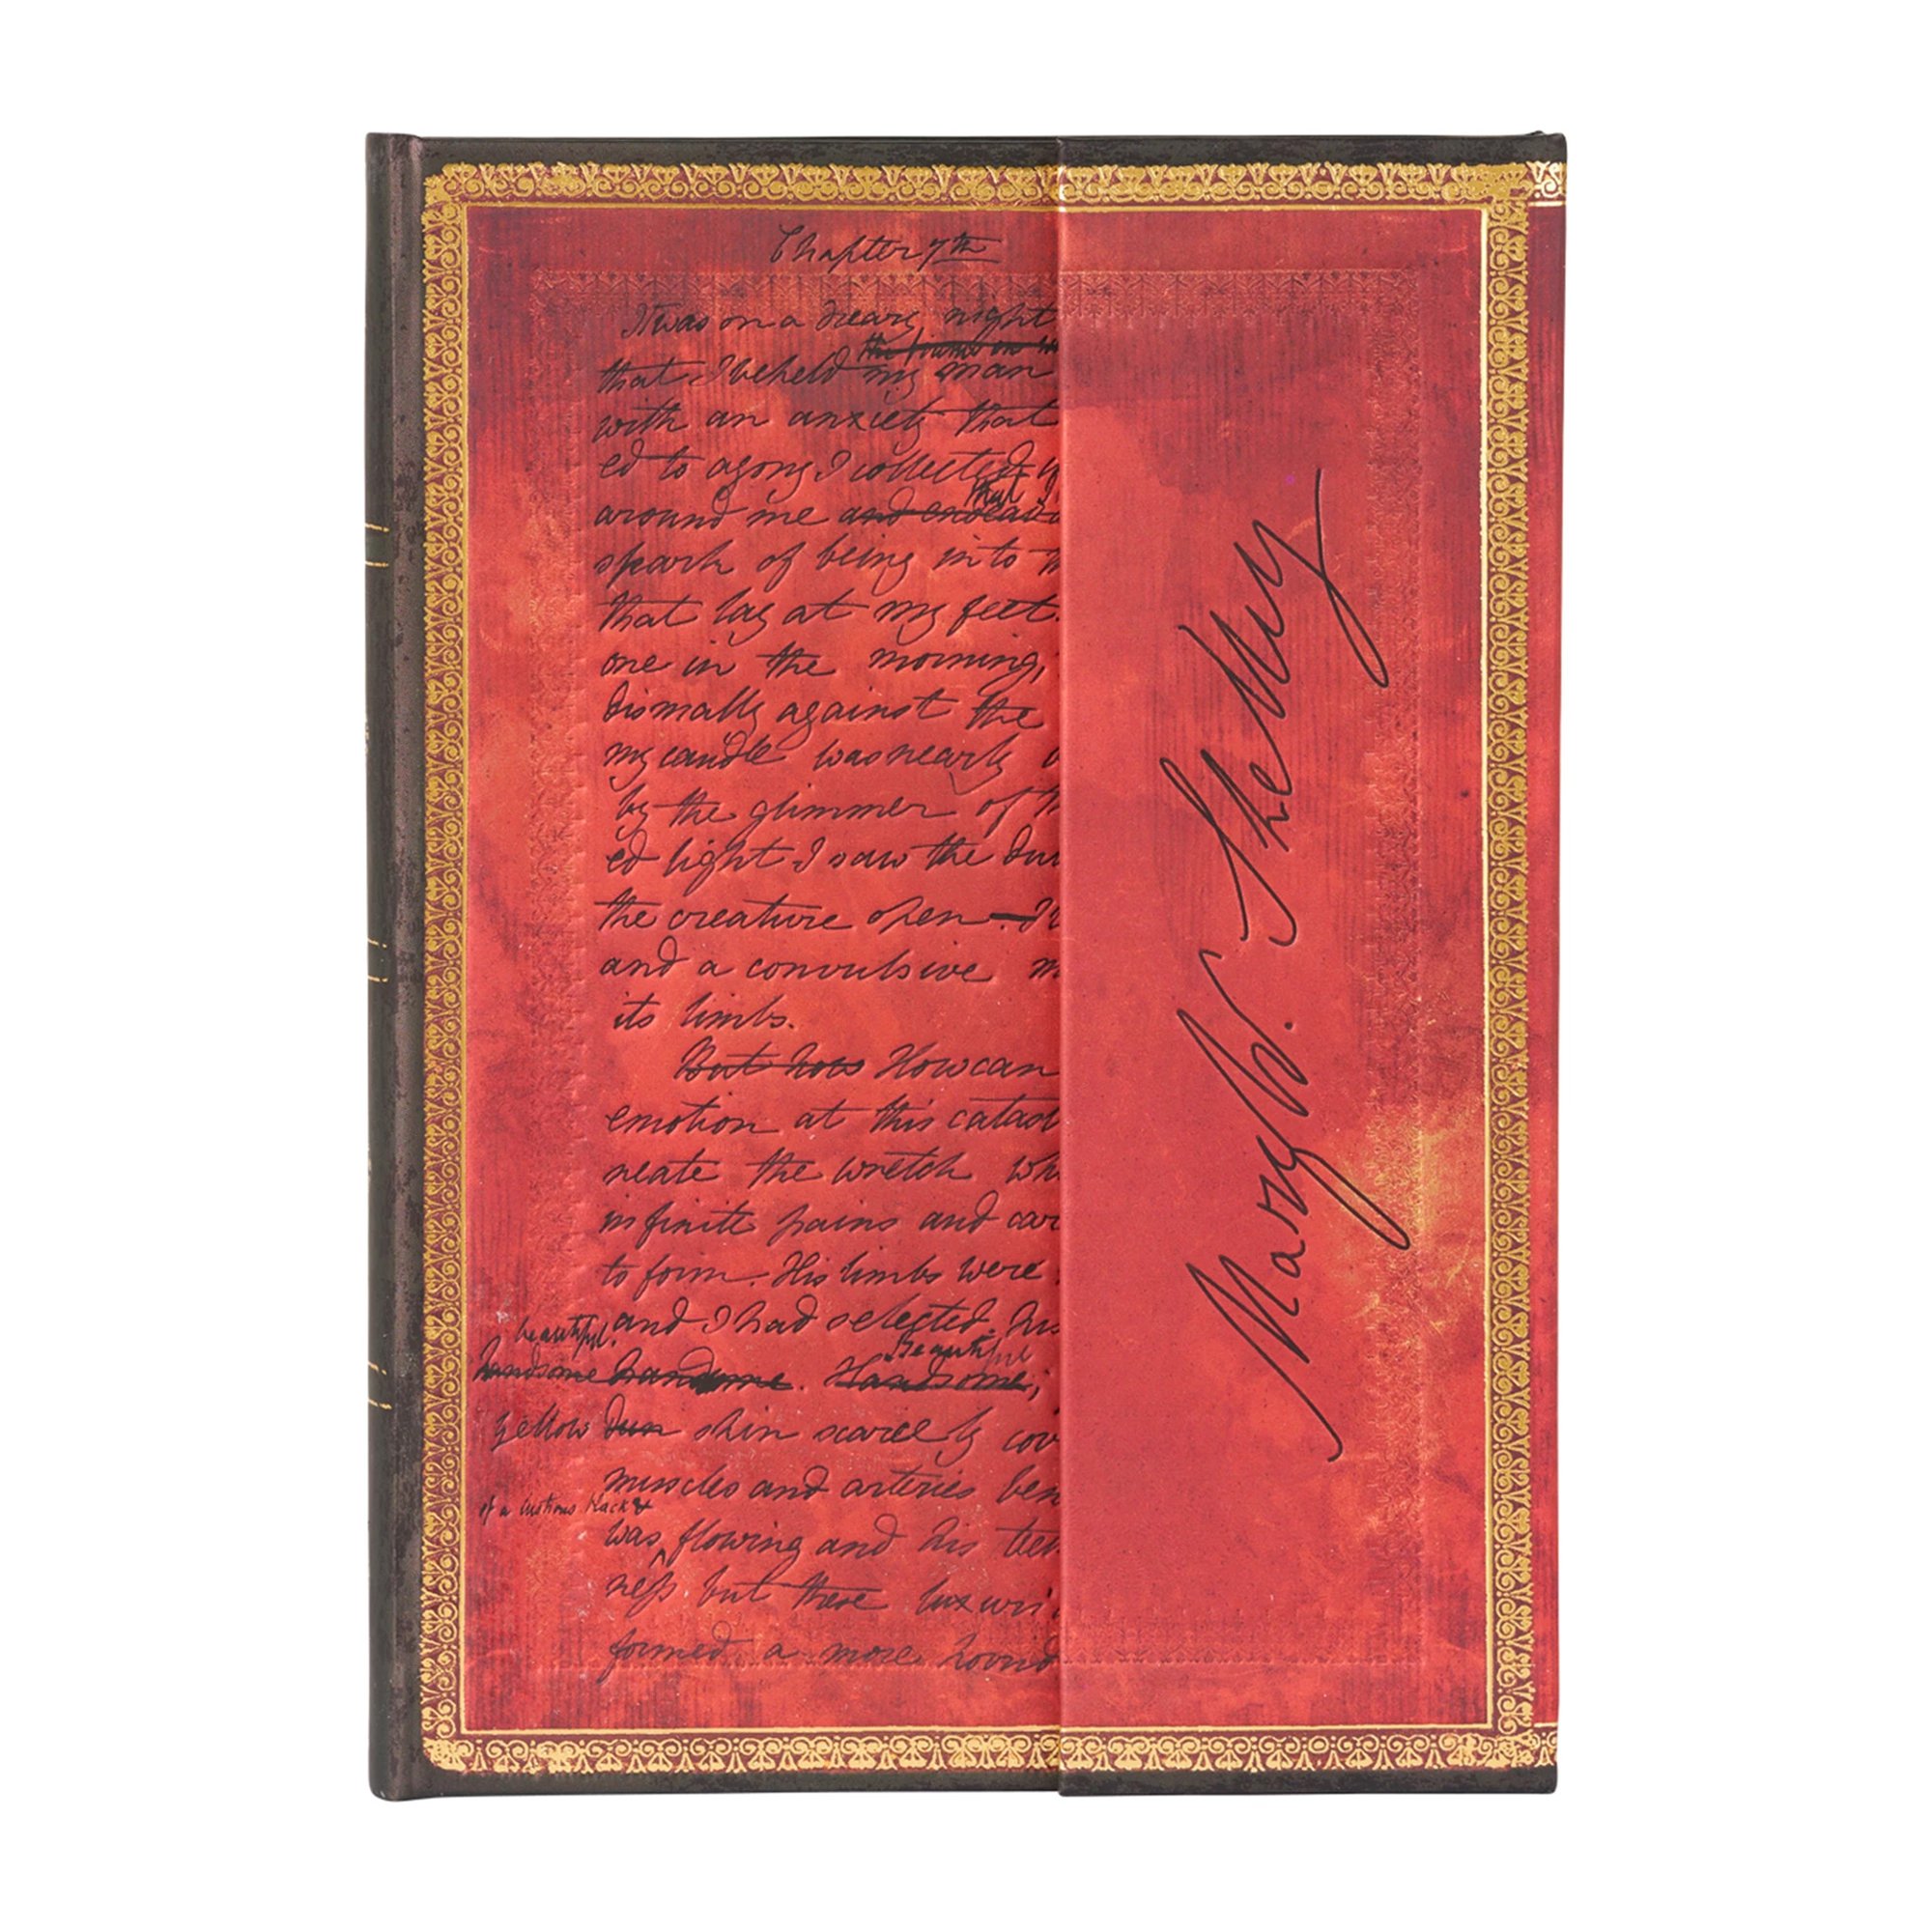 Chapter 7th
It was on a dreary night
that I beheld my man
with an anxiety that
ed to agony I collected
that
around me and endeav
spark of being into
that lay at my feet.
one in the morning,
dismally against the
my candle was nearly
by the glimmer of
ed light I saw the du
the creature open
and a convulsive
its limbs.
But how How can
emotion at this catas
neate the wretch wh
infinite pains and car
to form. His limbs were
and I had selected his
beautiful. Beautiful
handsome handsome. Handsome;
yellow dun skin scarcely cov
muscles and arteries ben
of a lustrous black &
was flowing and his tee
ness but these luxuri
formed a more horrid
Mary W. Shelley